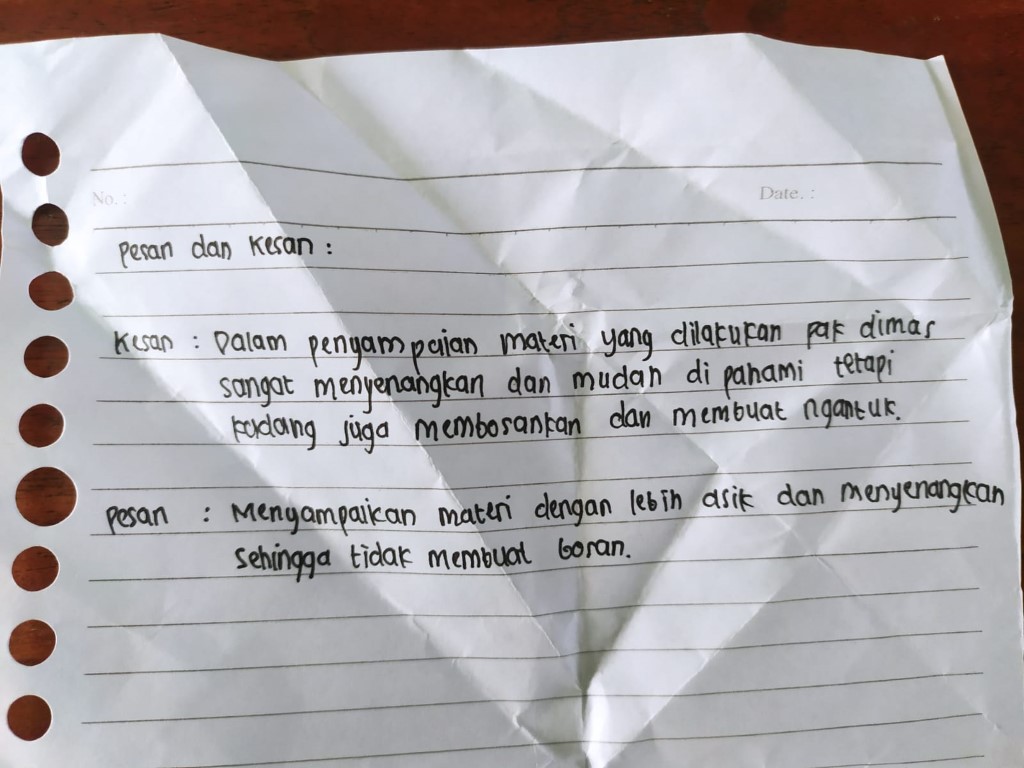 No. :
Date. :
Pesan dan Kesan :
Kesan : Dalam penyampaian materi yang dilakukan pak dimas
sangat menyenangkan dan mudah di pahami tetapi
kadang juga membosankan dan membuat ngantuk.
Pesan : Menyampaikan materi dengan lebih asik dan menyenangkan
sehingga tidak membuat bosan.